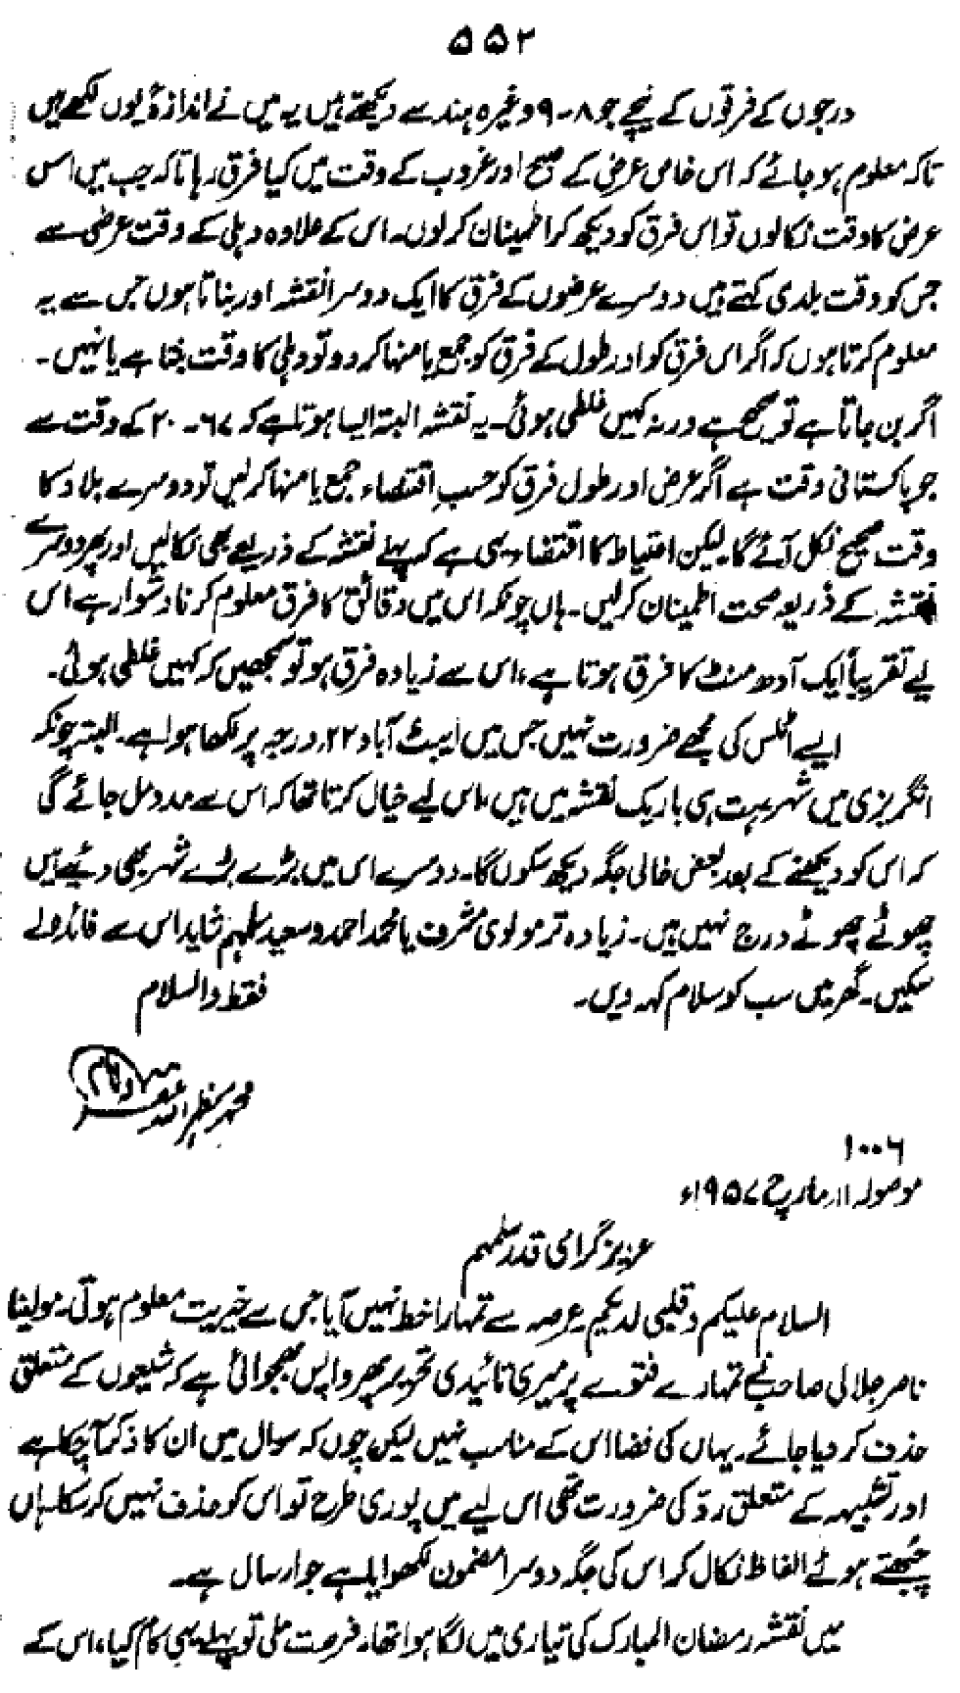 ۵۵۲
درجوں کے فرقوں کے نیچے جو ۸-۹ وغیرہ ہند سے دیکھتے ہیں یہ میں نے اندازہً یوں لکھے ہیں
تاکہ معلوم ہو جائے کہ اس خاص عرض کے صبح اور غروب کے وقت میں کیا فرق رہا تاکہ جب میں اس
عرض کا وقت نکالوں تو اس فرق کو دیکھ کر اطمینان کرلوں۔ اس کے علاوہ دہلی کے وقت عرضی سے
جس کو وقت بلدی کہتے ہیں دوسرے عرضوں کے فرق کا ایک دوسرا نقشہ اور بناتا ہوں جس سے یہ
معلوم کرتا ہوں کہ اگر اس فرق کو اور طول کے فرق کو جمع یا منہا کردو تو دہلی کا وقت بنتا ہے یا نہیں۔
اگر بن جاتا ہے تو صحیح ہے ورنہ کہیں غلطی ہوئی۔ یہ نقشہ البتہ ایسا ہوتا ہے کہ ۶۷-۲۰ کے وقت سے
جو پاکستانی وقت ہے اگر عرض اور طول فرق کو حسبِ اقتضاء جمع یا منہا کرلیں تو دوسرے بلاد کا
وقت صحیح نکل آئے گا۔ لیکن احتیاط کا اقتضاء یہی ہے کہ پہلے نقشہ کے ذریعے بھی نکالیں اور پھر دوسرے
نقشہ کے ذریعہ صحت اطمینان کرلیں۔ ہاں چونکہ اس میں دقائق کا فرق معلوم کرنا دشوار ہے اس
لیے تقریباً ایک آدھ منٹ کا فرق ہوتا ہے، اس سے زیادہ فرق ہو تو سمجھیں کہ کہیں غلطی ہوئی۔
ایسے اٹلس کی مجھے ضرورت نہیں جس میں ایبٹ آباد ۲۲؍ درجہ پر لکھا ہوا ہے۔ البتہ چونکہ
انگریزی میں شہر بہت ہی باریک نقشہ میں ہیں، اس لیے خیال کرتا تھا کہ اس سے مدد مل جائے گی
کہ اس کو دیکھنے کے بعد بعض خالی جگہ دیکھ سکوں گا۔ دوسرے اس میں بڑے بڑے شہر بھی دیئے ہیں
چھوٹے چھوٹے درج نہیں ہیں۔ زیادہ تر مولوی مشرف یا محمد احمد و سعید سلہم شاید اس سے فائدہ لے
سکیں۔ گھر میں سب کو سلام کہہ دیں۔ فقط والسلام
محمد مظہر اللہ غفرلہ
۱۰۰۶
موصولہ ۱۱؍ مارچ ۱۹۵۷ء
عزیز گرامی قدر سلمہم
السلام علیکم و قلبی لدیکم عرصہ سے تمہارا خط نہیں آیا جس سے خیریت معلوم ہوتی۔ مولیٰنا
ناصر جلالی صاحب نے تمہارے فتوے پر میری تائیدی تحریر پھر واپس بھجوائی ہے کہ شیعوں کے متعلق
حذف کر دیا جائے۔ یہاں کی فضا اس کے مناسب نہیں لیکن چوں کہ سوال میں ان کا ذکر آچکا ہے
اور تشبیہہ کے متعلق ردّ کی ضرورت تھی اس لیے میں پوری طرح تو اس کو حذف نہیں کر سکا۔ ہاں
چُبھتے ہوئے الفاظ نکال کر اس کی جگہ دوسرا مضمون لکھوایا ہے جو ارسال ہے۔
میں نقشہ رمضان المبارک کی تیاری میں لگا ہوا تھا۔ فرصت ملی تو پہلے یہی کام کیا، اس کے